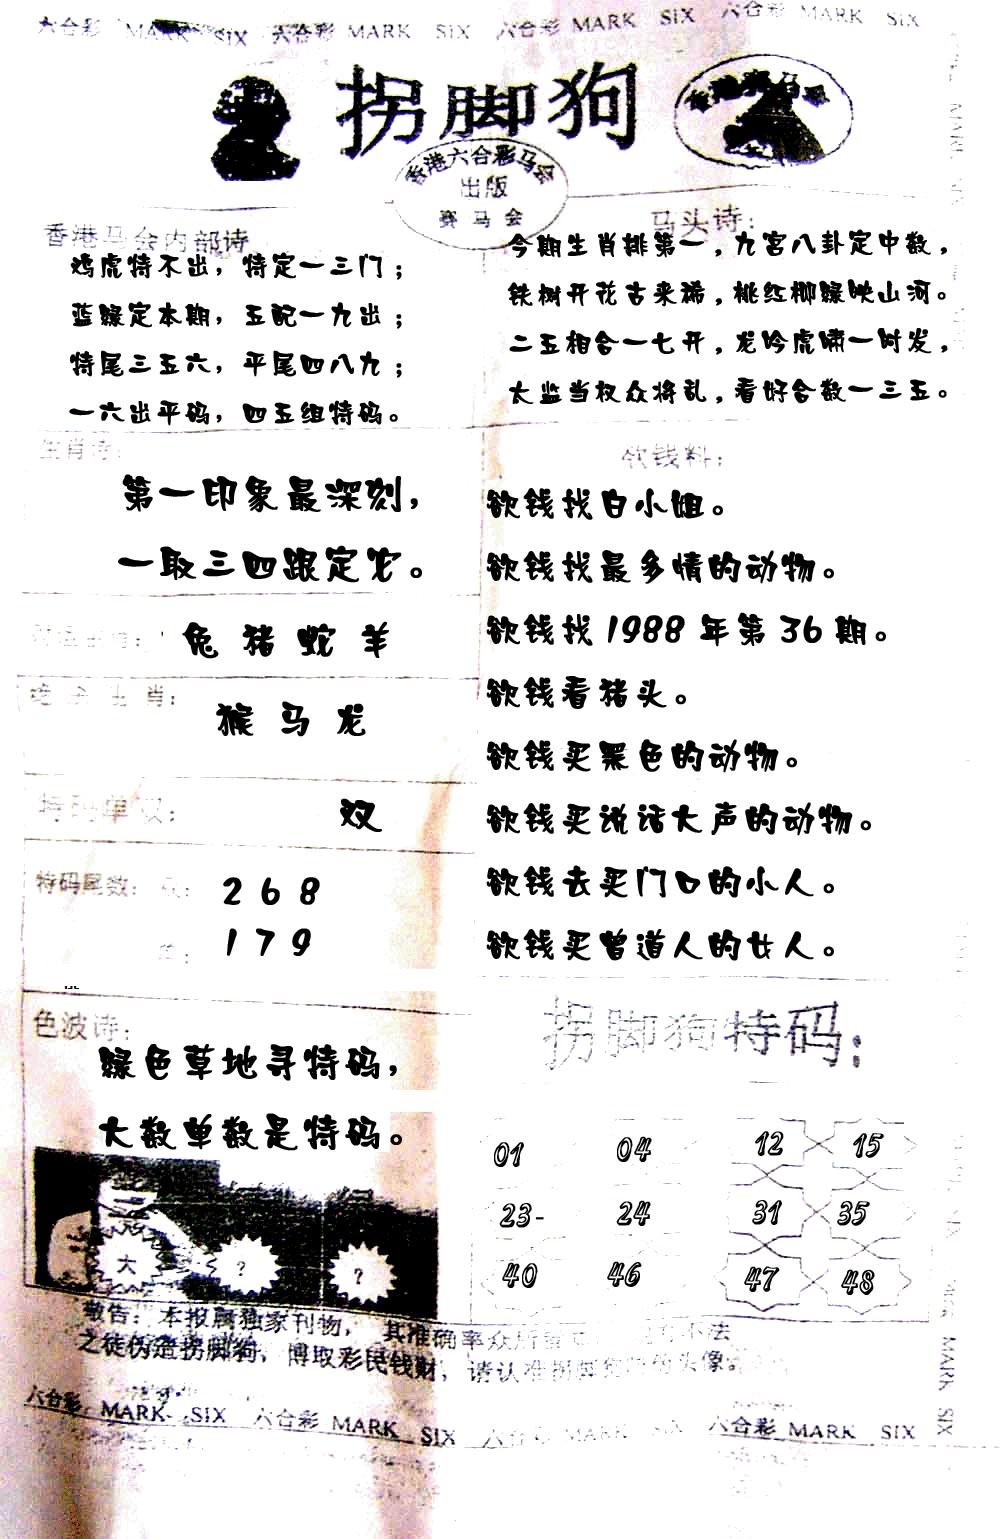 六合彩 MARK SIX 六合彩 MARK SIX 六合彩 MARK SIX 六合彩 MARK SIX
拐脚狗
香港六合彩马会
出版
赛马会
香港马会内部诗
鸡虎特不出，特定一三门；
蓝绿定本期，五配一九出；
特尾三五六，平尾四八九；
一六出平码，四五组特码。
马头诗：
今期生肖排第一，九宫八卦定中数，
铁树开花古来稀，桃红柳绿映山河。
二五相合一七开，龙吟虎啸一时发，
太监当权众将乱，看好合数一三五。
生肖诗：
第一印象最深刻，
一取三四跟定它。
兔 猪 蛇 羊
绝杀生肖：
猴 马 龙
特码单双：
双
特码尾数：
2 6 8
1 7 9
色波诗：
绿色草地寻特码，
大数单数是特码。
大 ? ?
欲钱料：
欲钱找白小姐。
欲钱找最多情的动物。
欲钱找1988年第36期。
欲钱看猪头。
欲钱买黑色的动物。
欲钱买说话大声的动物。
欲钱去买门口的小人。
欲钱买曾道人的女人。
拐脚狗特码：
01 04 12 15
23- 24 31 35
40 46 47 48
敬告：本报属独家刊物，其准确率众所 不法
之徒伪造拐脚狗，博取彩民钱财，请认准拐脚 头像。
六合彩 MARK SIX 六合彩 MARK SIX 六合彩 MARK SIX 六合彩 MARK SIX
MARK SIX